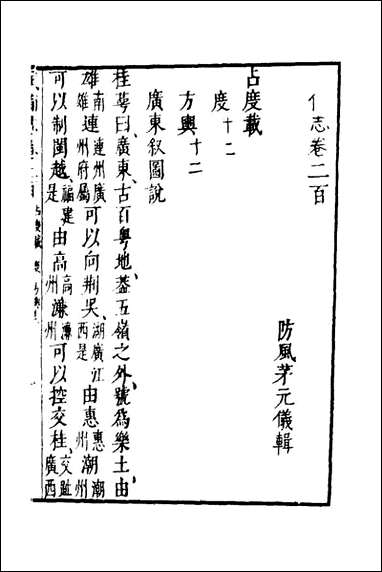 志卷二百
防風茅元儀輯
占度載
度十二
方輿十二
廣東叙圖說
桂萼曰、廣東、古百粤地、葢五嶺之外、號爲樂土、由
雄南雄連連州廣州府屬可以向荆吳、湖廣江西是由惠惠州潮潮州
可以制閩越、福建是由高高州濂濂州可以控交桂、交趾廣西